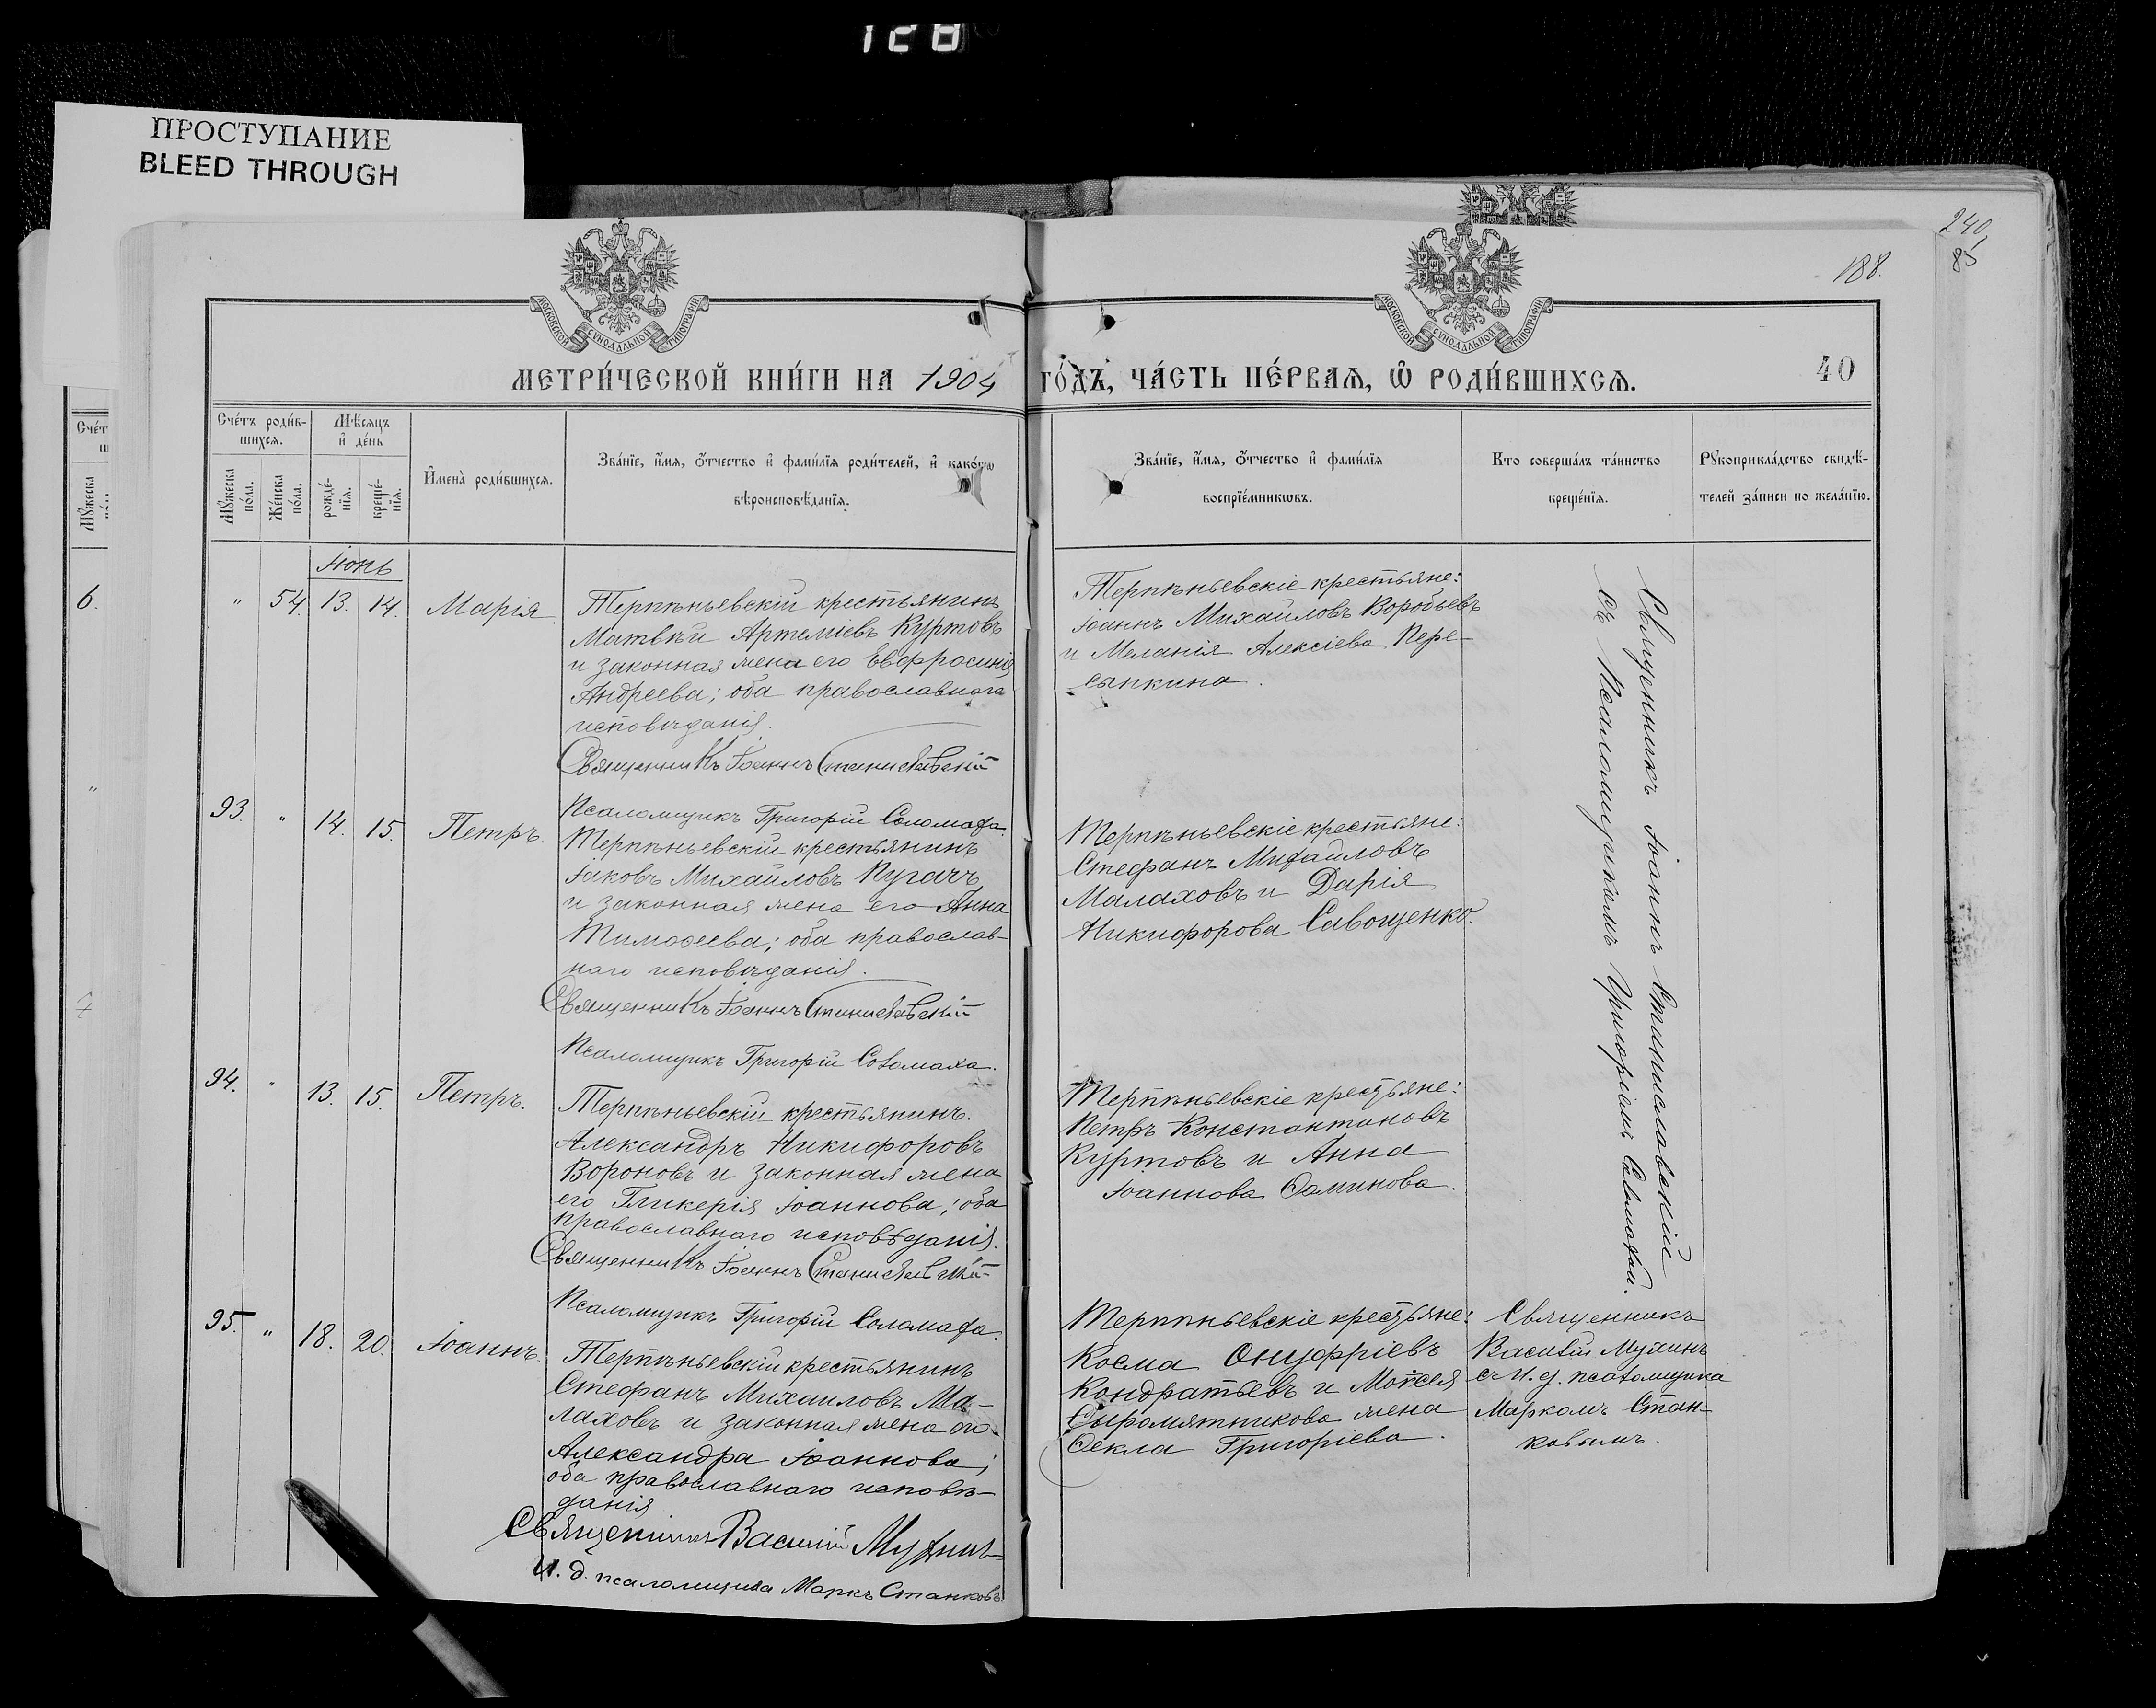 128
ПРОСТУПАНИЕ
BLEED THROUGH
240
85
188.
МОСКОВСКОЙ СѴНОДАЛЬНОЙ ТИПОГРАФІИ
МОСКОВСКОЙ СѴНОДАЛЬНОЙ ТИПОГРАФІИ
МЕТРИ́ЧЕСКОЙ КНИ́ГИ НА 1904 ГО́ДЪ, ЧА́СТЬ ПЕ́РВАѦ, Ѡ РОДИ́ВШИХСѦ.
40
Счéтъ роди́в-
шихсѧ.
Мꙋ́жеска
по́ла.
Же́нска
по́ла.
Мѣ́сѧцъ
и҆ де́нь
рожде́-
нїѧ.
креще́-
нїѧ.
И҆мена̀ роди́вшихсѧ.
Зва́нїе, и҆́мѧ, ѻ҆́тчество и҆ фами́лїѧ роди́телей, и҆ како́гѡ
вѣроисповѣ́данїѧ.
Зва́нїе, и҆́мѧ, ѻ҆́тчество и҆ фами́лїѧ
воспрїе́мникѡвъ.
Кто соверша́лъ та́инство
креще́нїѧ.
Рꙋкоприкла́дство свидѣ́-
телей за́писи по жела́нїю.
Счéт
Мꙋ́жеска
6.
"
Іюнь
" 54. 13. 14. Марія
Терпѣньевскій крестьянинъ
Матвѣй Артеміевъ Куртовъ
и законная жена его Евфросинія
Андреева; оба православнаго
исповѣданія.
Священникъ Іоаннъ Станиславскій
Псаломщикъ Григорій Соломаха.
Терпѣньевскіе крестьяне:
Іоаннъ Михайловъ Воробьевъ
и Меланія Алексіева Пере-
сыпкина.
Священникъ Іоаннъ Станиславскій
съ Псаломщикомъ Григоріемъ Соломахой.
93. " 14. 15. Петръ.
Терпѣньевскій крестьянинъ
Іаковъ Михайловъ Пугачъ
и законная жена его Анна
Тимоѳеева; оба православ-
наго исповѣданія.
Священникъ Іоаннъ Станиславскій
Псаломщикъ Григорій Соломаха.
Терпѣньевскіе крестьяне:
Стефанъ Михайловъ
Малаховъ и Дарія
Никифорова Савощенко.
94. " 13. 15. Петръ.
Терпѣньевскій крестьянинъ.
Александръ Никифоровъ
Вороновъ и законная жена
его Гликерія Іоаннова; оба
православнаго исповѣданія.
Священникъ Іоаннъ Станиславскій
Псаломщикъ Григорій Соломаха.
Терпѣньевскіе крестьяне:
Петръ Константиновъ
Куртовъ и Анна
Іоаннова Ѳоминова.
95. " 18. 20. Іоаннъ.
Терпѣньевскій крестьянинъ
Стефанъ Михаиловъ Ма-
лаховъ и законная жена его
Александра Іоаннова;
оба православнаго исповѣ-
данія
Священникъ Василій Мухинъ
И. д. псаломщика Маркъ Станковъ
Терпѣньевскіе крестьяне:
Косма Онуфріевъ
Кондратьевъ и Моисея
Сыромятникова жена
Ѳекла Григоріева.
Священникъ
Василій Мухинъ
съ И. д. псаломщика
Маркомъ Стан-
ковымъ.